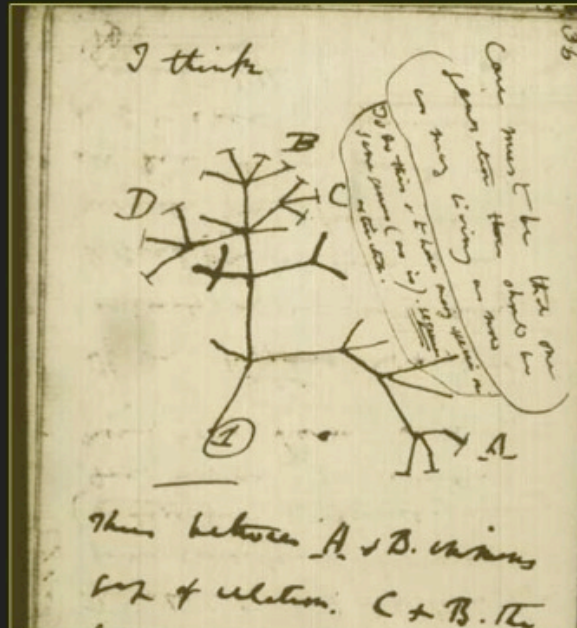 36
I think
B
C
D
A
1
Case must be that one
generation then should be
as many living as now
To do this & to have many species in
same genus (as is). requires
extinction.
Thus between A. & B. immens
gap of relation. C & B. The